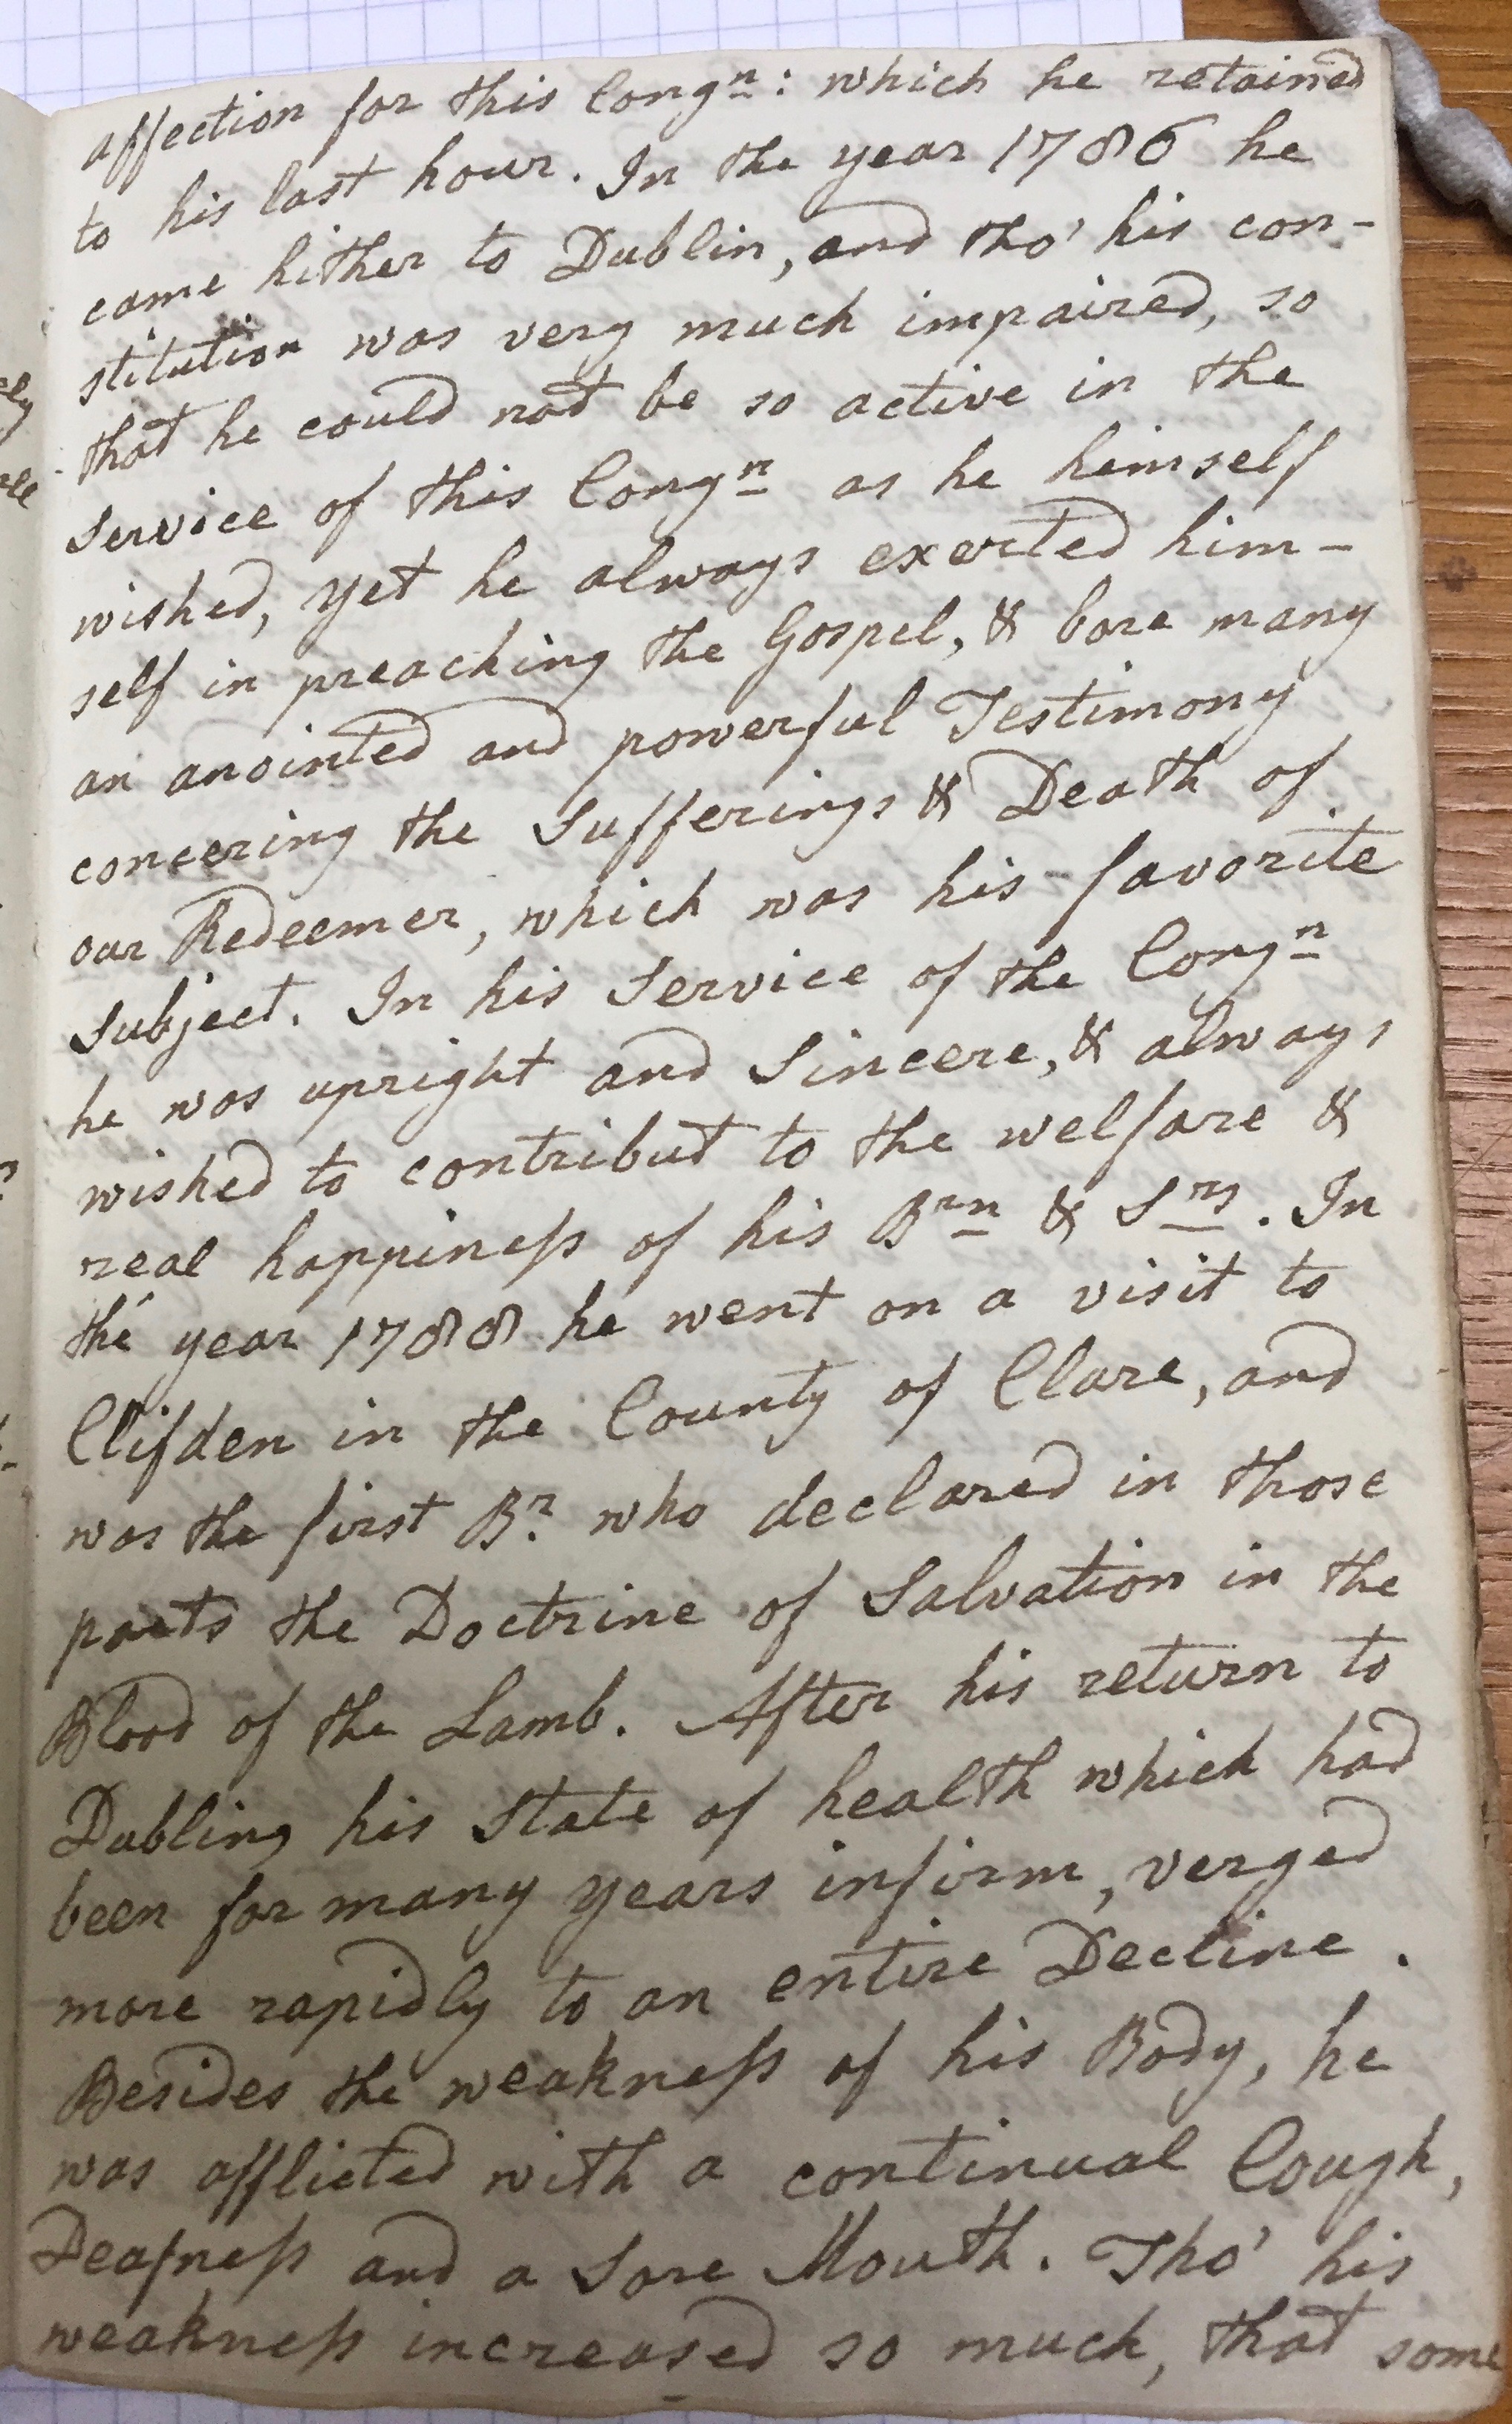 affection for this Congn: which he retained
to his last hour. In the year 1786 he
came hither to Dublin, and tho' his con-
stitution was very much impaired, so
that he could not be so active in the
Service of this Congn as he himself
wished, yet he always exerted him-
self in preaching the Gospel, & bore many
an anointed and powerful Testimony
concering the Sufferings & Death of
our Redeemer, which was his favorite
Subject. In his Service of the Congn
he was upright and Sincere, & always
wished to contribut to the welfare &
real happiness of his Brn & Srs. In
the year 1788 he went on a visit to
Clifden in the County of Clare, and
was the first Br. who declared in those
parts the Doctrine of Salvation in the
Blood of the Lamb. After his return to
Dubling his State of health which had
been for many years infirm, verged
more rapidly to an entire Decline.
Besides the weakness of his Body, he
was afflicted with a continual Cough,
Deafness and a Sore Mouth. Tho' his
weakness increased so much, that some